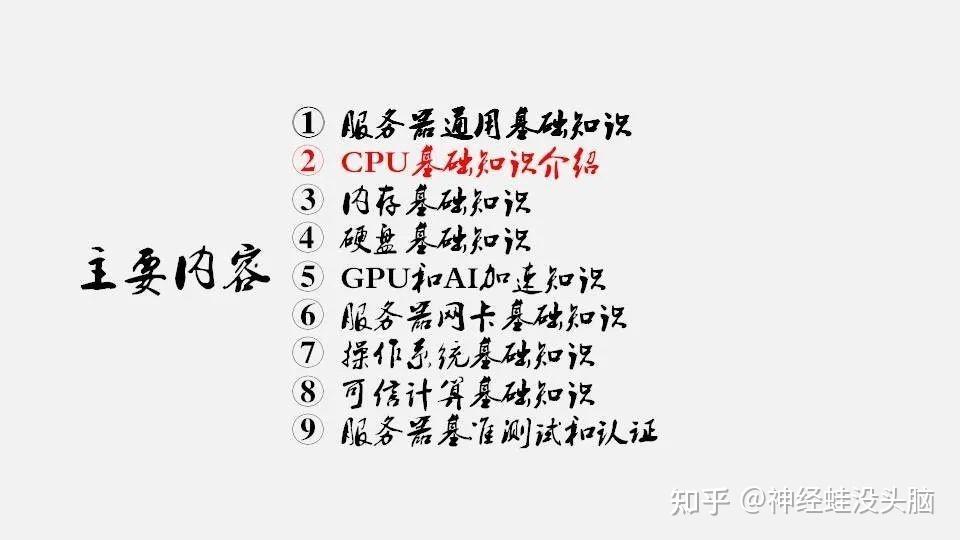 主要内容
① 服务器通用基础知识
② CPU基础知识介绍
③ 内存基础知识
④ 硬盘基础知识
⑤ GPU和AI加速知识
⑥ 服务器网卡基础知识
⑦ 操作系统基础知识
⑧ 可信计算基础知识
⑨ 服务器基准测试和认证
知乎 @神经蛙没头脑